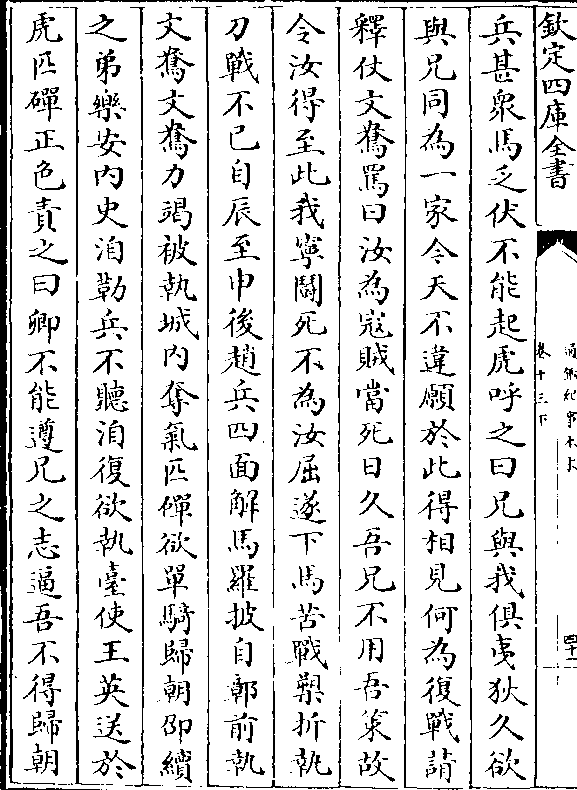 欽定四庫全書
通鑑紀事本末
卷十三下
四十二
兵甚衆馬乏伏不能起虎呼之曰兄與我俱夷狄久欲
與兄同為一家今天不違願於此得相見何為復戰請
釋仗文鴦罵曰汝為冦賊當死日久吾兄不用吾策故
令汝得至此我寧鬭死不為汝屈遂下馬苦戰槊折執
刀戰不已自辰至申後趙兵四面解馬羅披自鄣前執
文鴦文鴦力竭被執城内奪氣匹磾欲單騎歸朝邵續
之弟樂安内史洎勒兵不聽洎復欲執臺使王英送於
虎匹磾正色責之曰卿不能遵兄之志逼吾不得歸朝